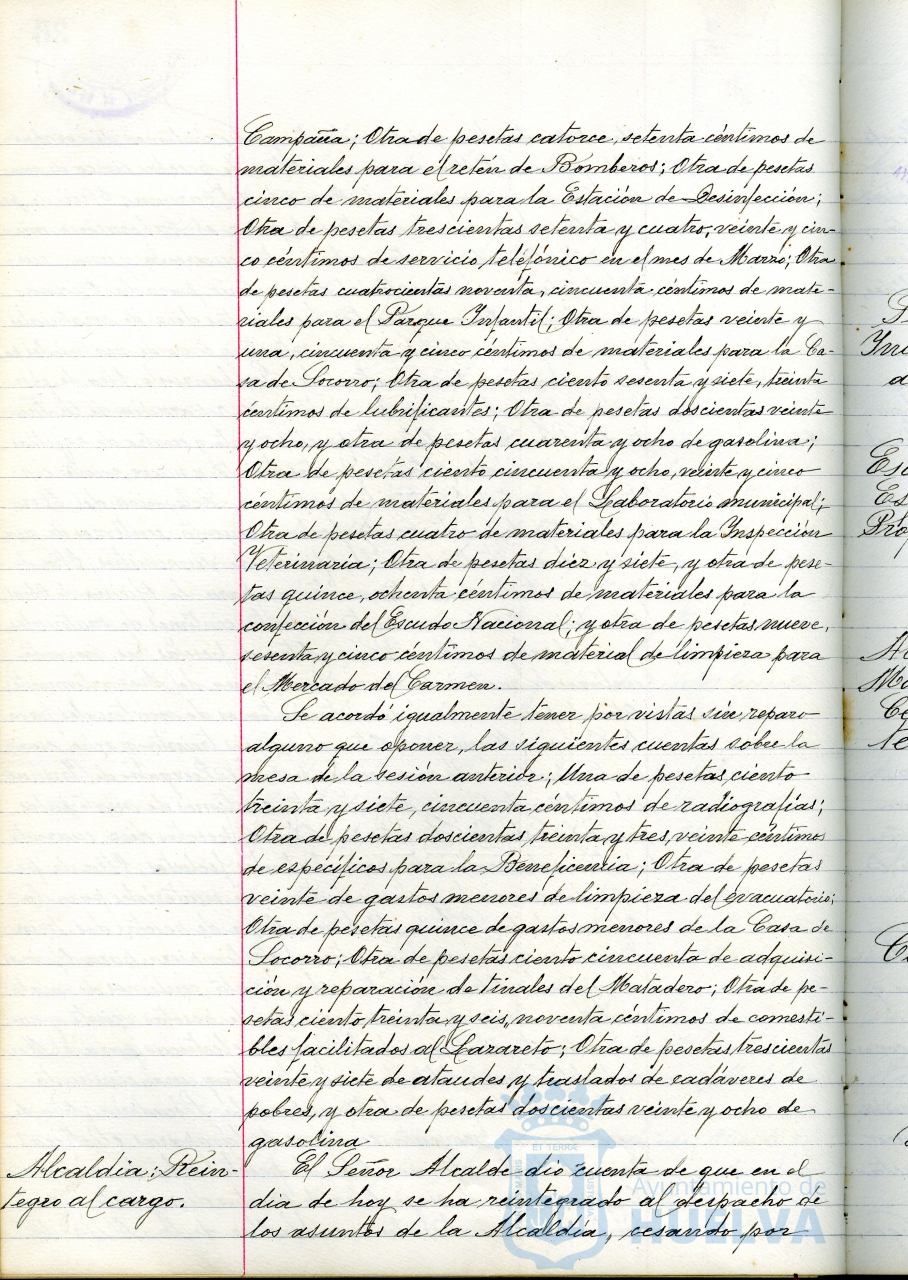 Campaña; Otra de pesetas catorce, setenta céntimos de
materiales para el retén de Bomberos; Otra de pesetas
cinco de materiales para la Estación de Desinfección;
Otra de pesetas trescientas setenta y cuatro, veinte y cin-
co céntimos de servicio telefónico en el mes de Marzo; Otra
de pesetas cuatrocientas noventa, cincuenta céntimos de mate-
riales para el Parque Infantil; Otra de pesetas veinte y
una, cincuenta y cinco céntimos de materiales para la Ca-
sa de Socorro; Otra de pesetas ciento sesenta y siete, treinta
céntimos de lubrificantes; Otra de pesetas doscientas veinte
y ocho, y otra de pesetas cuarenta y ocho de gasolina;
Otra de pesetas ciento cincuenta y ocho, veinte y cinco
céntimos de materiales para el Laboratorio municipal;
Otra de pesetas cuatro de materiales para la Inspección
Veterinaria; Otra de pesetas diez y siete, y otra de pese-
tas quince, ochenta céntimos de materiales para la
confección del Escudo Nacional; y otra de pesetas nueve,
sesenta y cinco céntimos de material de limpieza para
el Mercado del Carmen.
Se acordó igualmente tener por vistas sin reparo
alguno que oponer, las siguientes cuentas sobre la
mesa de la sesión anterior; Una de pesetas ciento
treinta y siete, cincuenta céntimos de radiografías;
Otra de pesetas doscientas treinta y tres, veinte céntimos
de específicos para la Beneficencia; Otra de pesetas
veinte de gastos menores de limpieza del evacuatorio;
Otra de pesetas quince de gastos menores de la Casa de
Socorro; Otra de pesetas ciento cincuenta de adquisi-
ción y reparación de tinales del Matadero; Otra de pe-
setas ciento treinta y seis, noventa céntimos de comesti-
bles facilitados al Lazareto; Otra de pesetas trescientas
veinte y siete de ataudes y traslados de cadáveres de
pobres, y otra de pesetas doscientas veinte y ocho de
gasolina
Alcaldia: Rein-
tegro al cargo.
El Señor Alcalde dió cuenta de que en el
dia de hoy se ha reintegrado al despacho de
los asuntos de la Alcaldía, cesando por
Ayuntamiento de
HUELVA